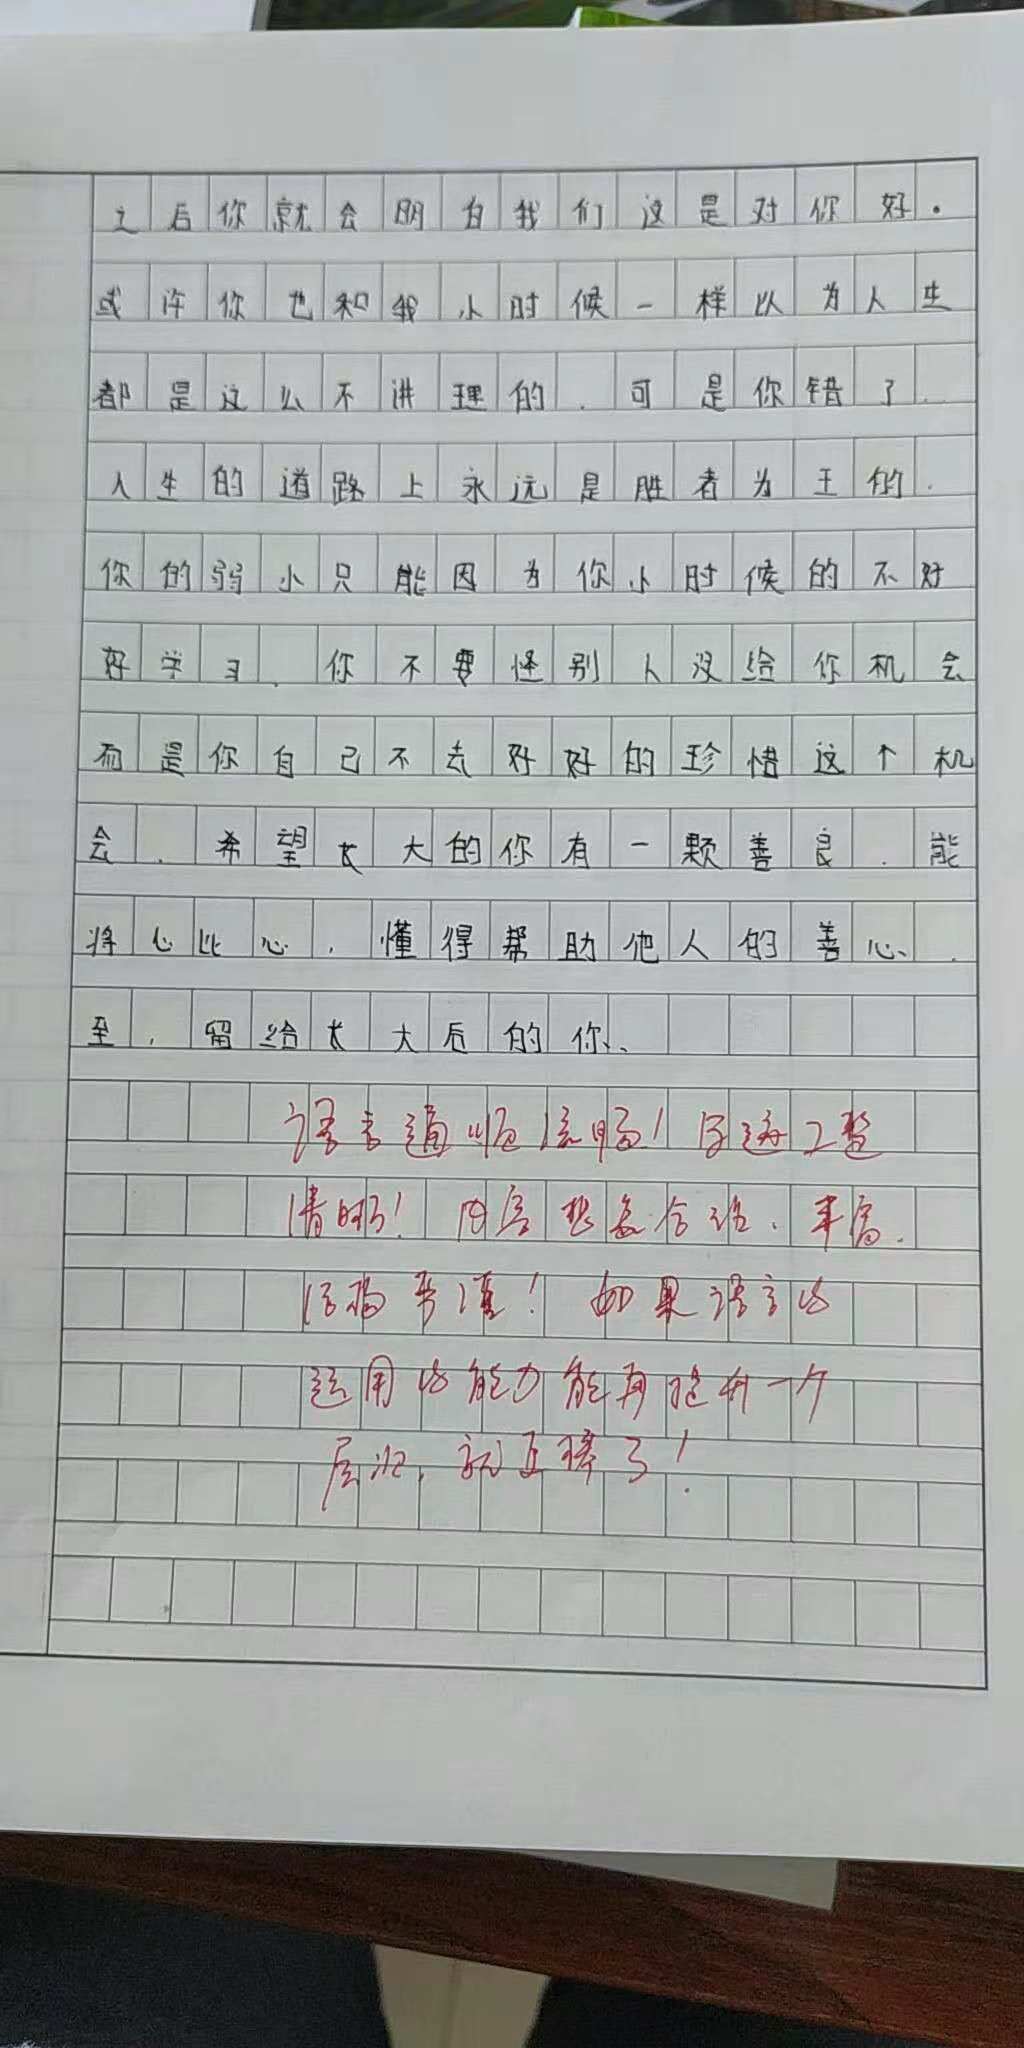 之后你就会明白我们这是对你好.
或许你也和我小时候一样以为人生
都是这么不讲理的.可是你错了.
人生的道路上永远是胜者为王的.
你的弱小只能因为你小时候的不好
好学习.你不要怪别人没给你机会
而是你自己不去好好的珍惜这个机
会.希望长大的你有一颗善良.能
将心比心.懂得帮助他人的善心.
至,留给长大后的你、
语言通顺流畅!字迹工整
清晰!内容想象合理、丰富.
活泼易懂!如果语言的
运用的能力能再提升一个
层次,就更棒了!